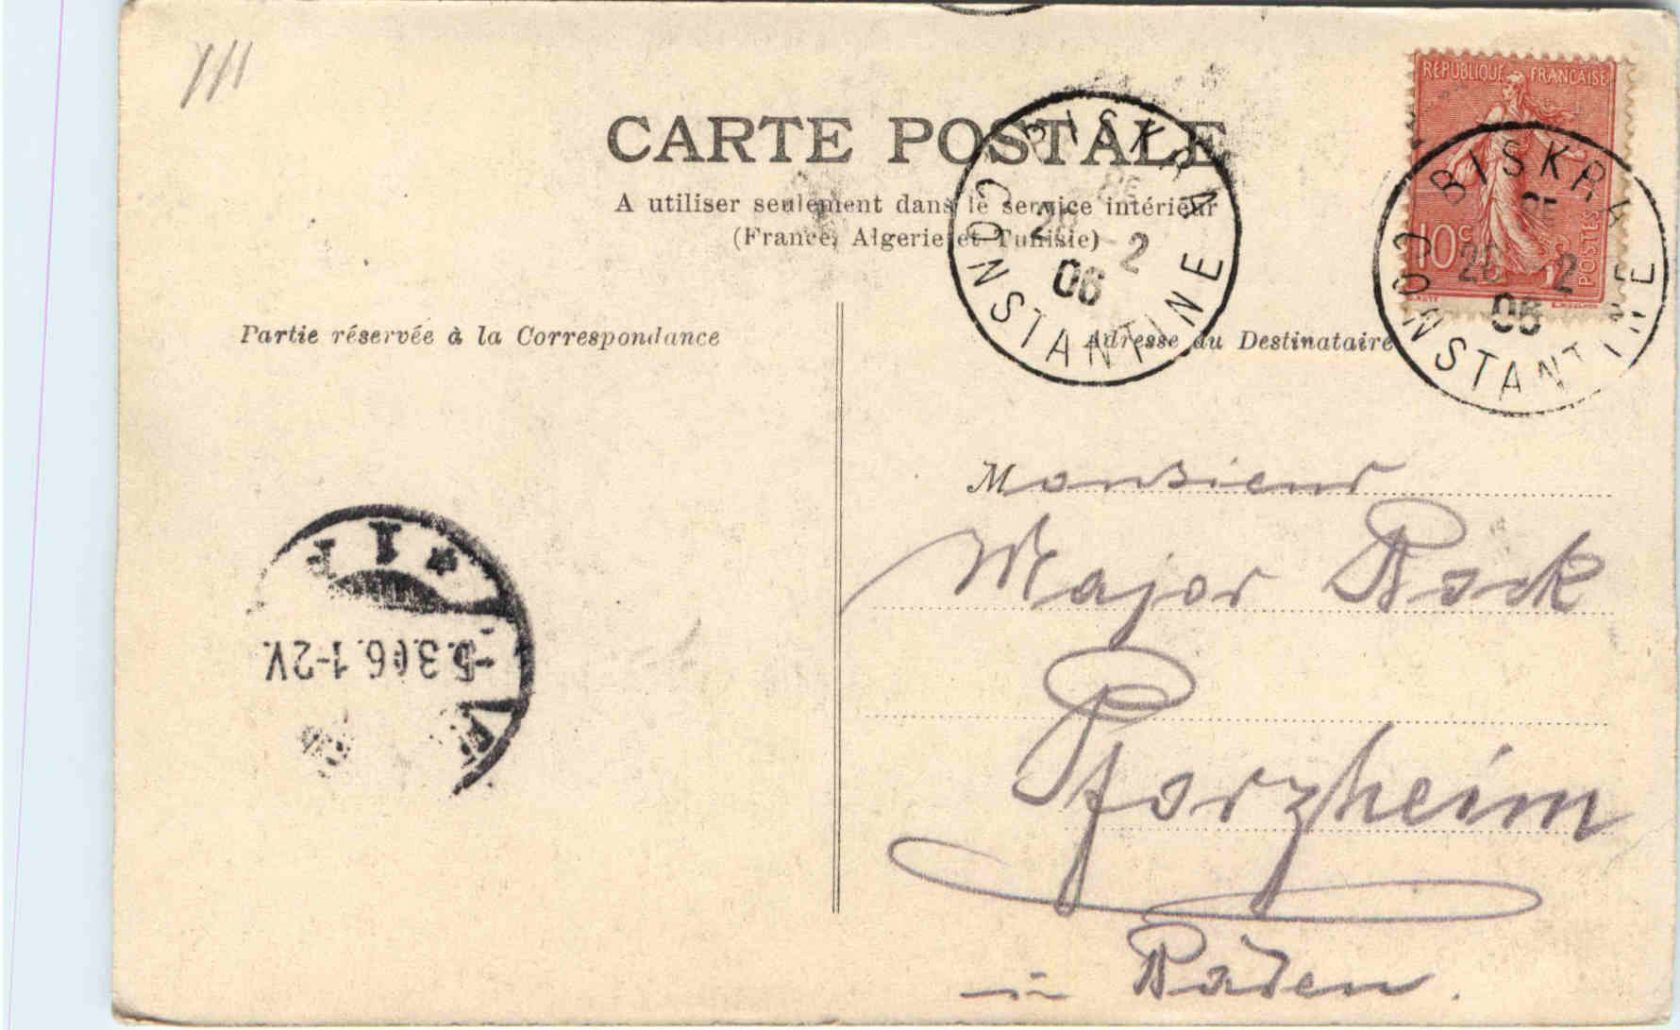 CARTE POSTALE
A utiliser seulement dans le service intérieur
(France, Algerie et Tunisie)
REPUBLIQUE FRANÇAISE
10c
POSTES
BISKRA
26 2
06
CONSTANTINE
BISKRA
26 2
06
CONSTANTINE
Partie réservée à la Correspondance
Adresse du Destinataire
Monsieur
Major Rock
Pforzheim
in Baden.
1
5.3.06.1-2V.